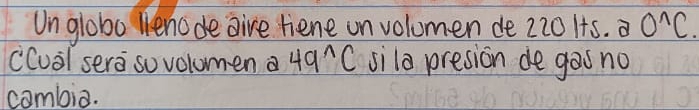 Un globo lleno de aire tiene un volumen de 220 lts. a 0^C.
¿Cuál será su volumen a 49^C si la presión de gas no
cambia.